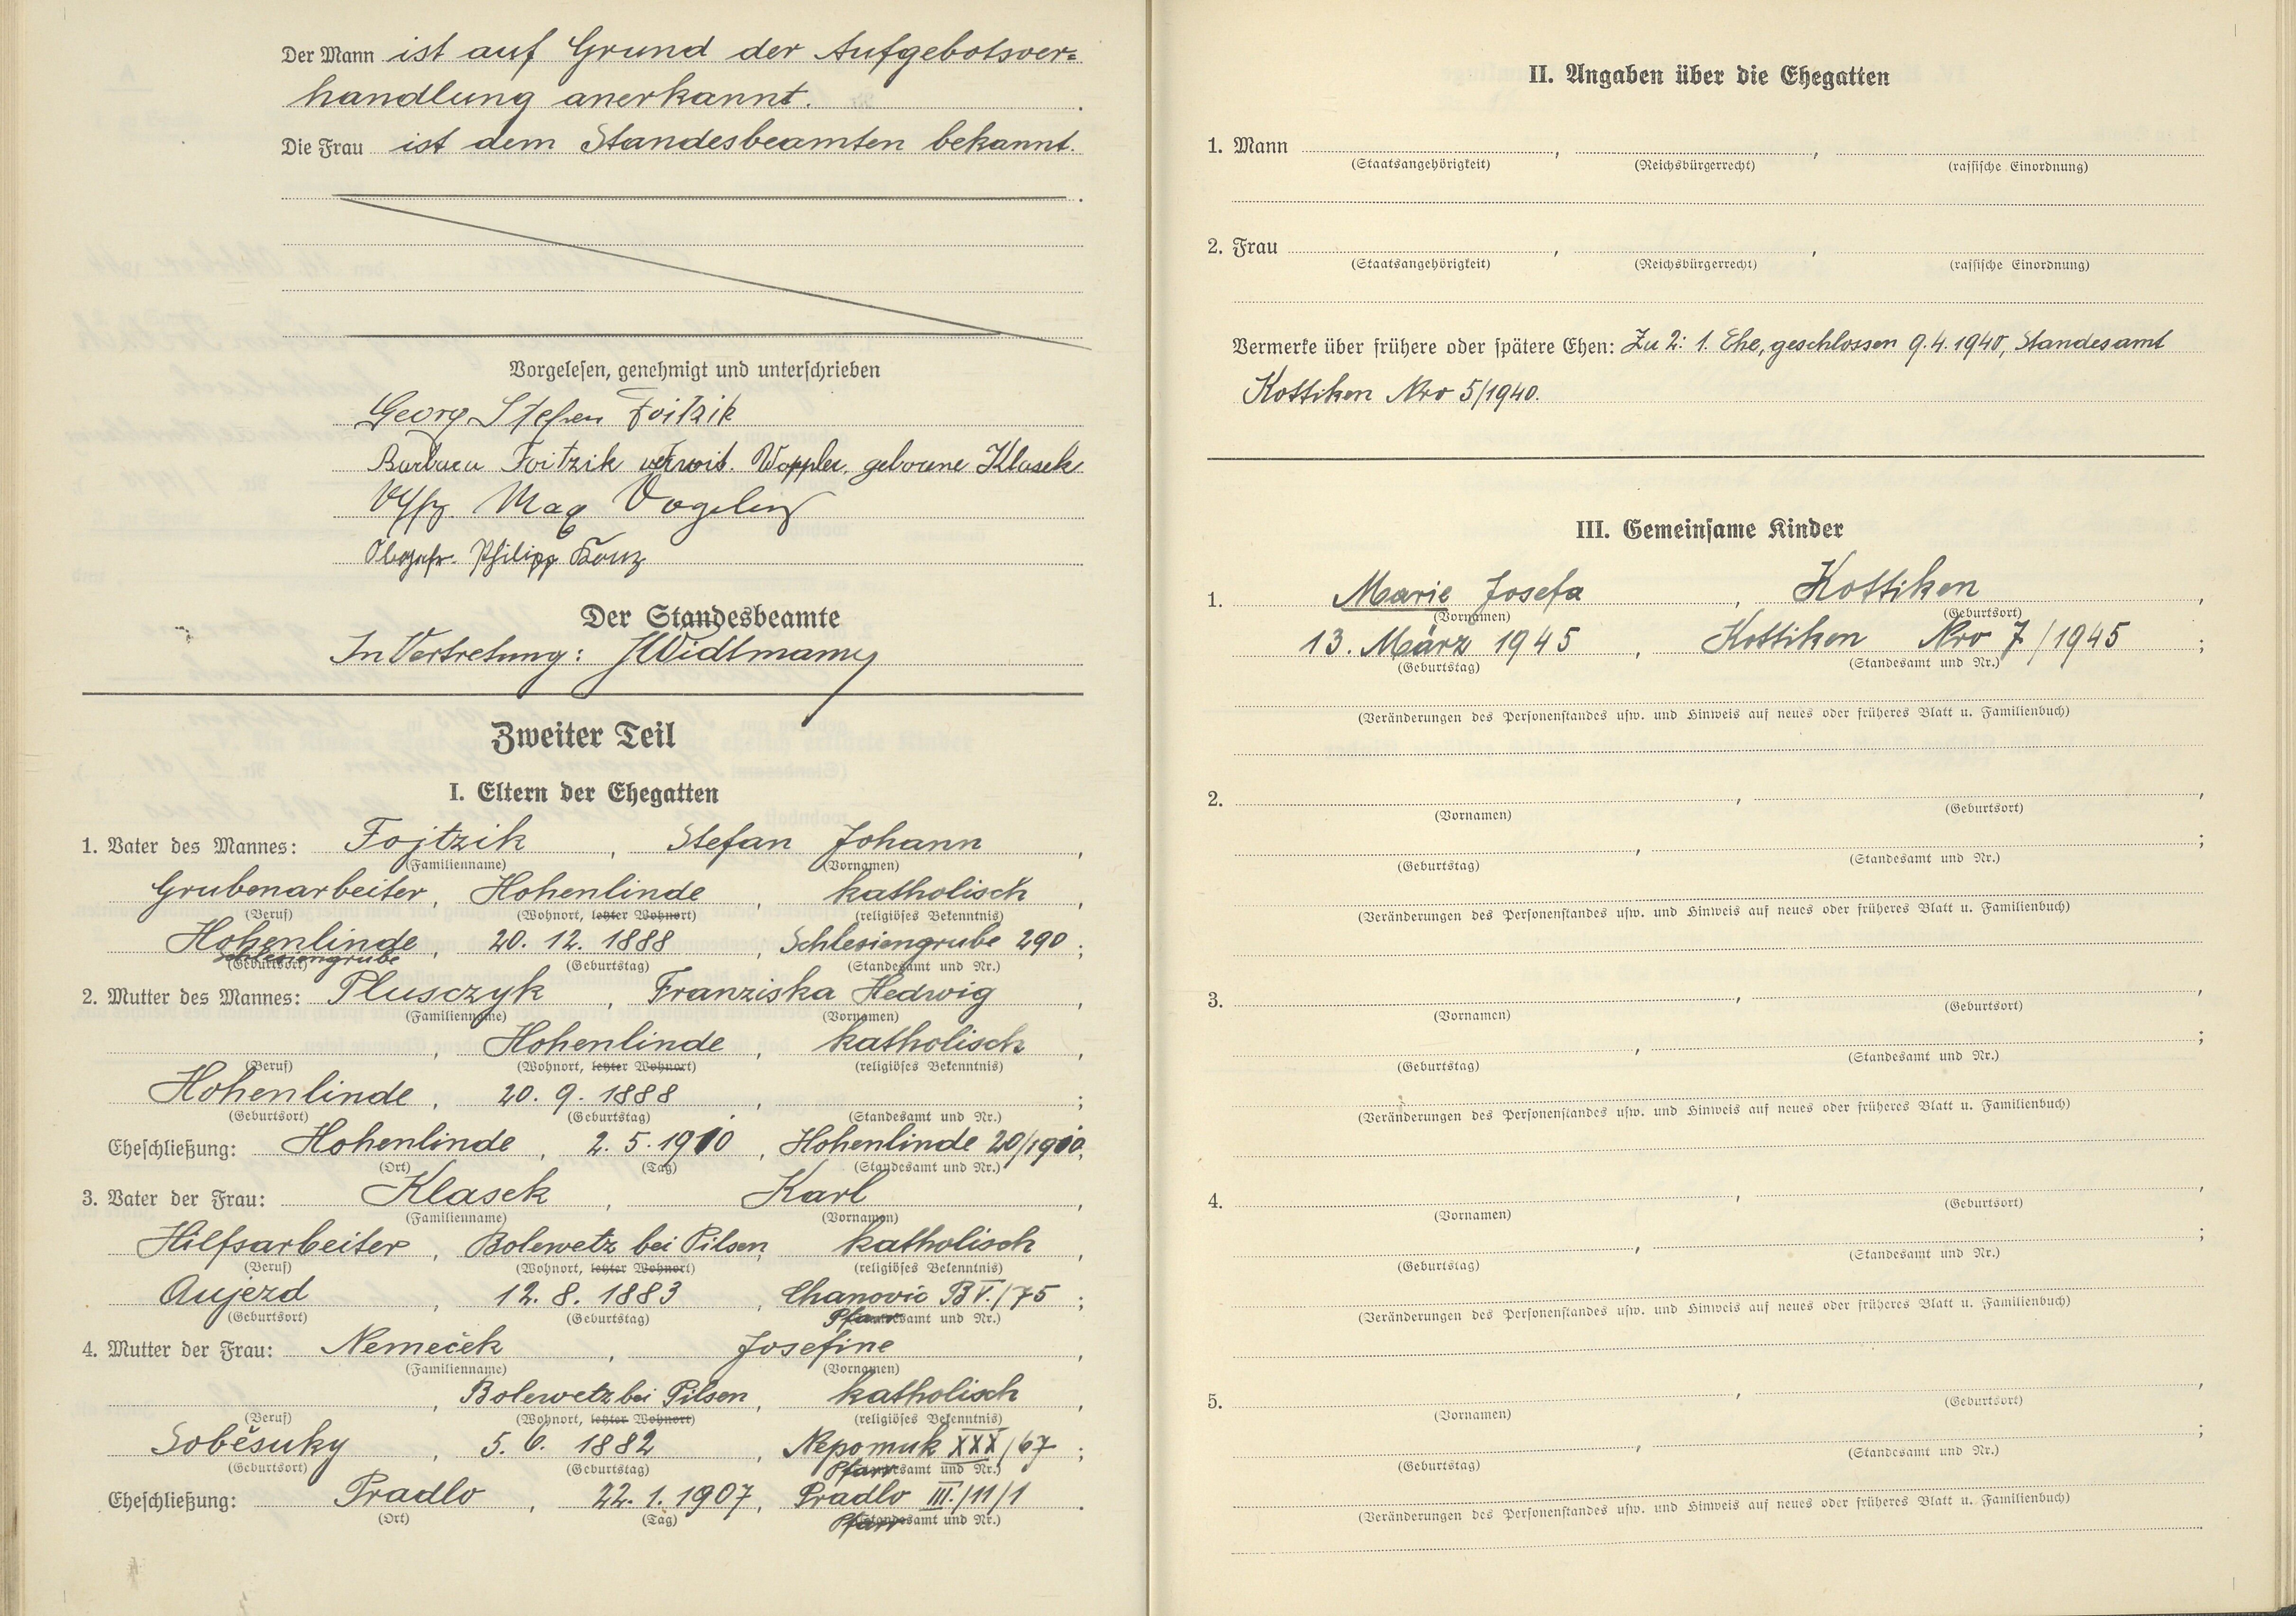 Der Mann ist auf Grund der Aufgebotsver=
handlung anerkannt.
Die Frau ist dem Standesbeamten bekannt.
Vorgelesen, genehmigt und unterschrieben
Georg Stefan Foitzik
Barbara Foitzik verwit. Woppler, geborene Klasek
Max
Obergefr. Philipp
Der Standesbeamte
In Vertretung: Widtmann
Zweiter Teil
I. Eltern der Ehegatten
1. Vater des Mannes: Fojtzik, Stefan Johann,
(Familienname) (Vornamen)
Grubenarbeiter, Hohenlinde, katholisch,
(Beruf) (Wohnort, letzter Wohnort) (religiöses Bekenntnis)
Hohenlinde, 20. 12. 1888, Schlesiengrube 290;
Schlesiengrube
(Geburtsort) (Geburtstag) (Standesamt und Nr.)
2. Mutter des Mannes: Plusczyk, Franziska Hedwig,
(Familienname) (Vornamen)
, Hohenlinde, katholisch,
(Beruf) (Wohnort, letzter Wohnort) (religiöses Bekenntnis)
Hohenlinde, 20. 9. 1888, ;
(Geburtsort) (Geburtstag) (Standesamt und Nr.)
Eheschließung: Hohenlinde, 2. 5. 1910, Hohenlinde 20/1910.
(Ort) (Tag) (Standesamt und Nr.)
3. Vater der Frau: Klasek, Karl,
(Familienname) (Vornamen)
Hilfsarbeiter, Bolewetz bei Pilsen, katholisch,
(Beruf) (Wohnort, letzter Wohnort) (religiöses Bekenntnis)
Aujezd, 12. 8. 1883, Chanovic B V./75;
(Geburtsort) (Geburtstag) Pfarramt und Nr.)
4. Mutter der Frau: Nemeček, Josefine,
(Familienname) (Vornamen)
, Bolewetz bei Pilsen, katholisch,
(Beruf) (Wohnort, letzter Wohnort) (religiöses Bekenntnis)
Soběsuky, 5. 6. 1882, Nepomuk XXX/67;
(Geburtsort) (Geburtstag) Pfarramt und Nr.)
Eheschließung: Pradlo, 22. 1. 1907, Pradlo III./11/1.
(Ort) (Tag) Pfarramt und Nr.)
II. Angaben über die Ehegatten
1. Mann , ,
(Staatsangehörigkeit) (Reichsbürgerrecht) (rassische Einordnung)
2. Frau , ,
(Staatsangehörigkeit) (Reichsbürgerrecht) (rassische Einordnung)
Vermerke über frühere oder spätere Ehen: Zu 2: 1. Ehe, geschlossen 9. 4. 1940, Standesamt
Kottiken Nro 5/1940.
III. Gemeinsame Kinder
1. Marie Josefa, Kottiken,
(Vornamen) (Geburtsort)
13. März 1945, Kottiken Nro 7/1945;
(Geburtstag) (Standesamt und Nr.)
(Veränderungen des Personenstandes usw. und Hinweis auf neues oder früheres Blatt u. Familienbuch)
2. , ,
(Vornamen) (Geburtsort)
, ;
(Geburtstag) (Standesamt und Nr.)
(Veränderungen des Personenstandes usw. und Hinweis auf neues oder früheres Blatt u. Familienbuch)
3. , ,
(Vornamen) (Geburtsort)
, ;
(Geburtstag) (Standesamt und Nr.)
(Veränderungen des Personenstandes usw. und Hinweis auf neues oder früheres Blatt u. Familienbuch)
4. , ,
(Vornamen) (Geburtsort)
, ;
(Geburtstag) (Standesamt und Nr.)
(Veränderungen des Personenstandes usw. und Hinweis auf neues oder früheres Blatt u. Familienbuch)
5. , ,
(Vornamen) (Geburtsort)
, ;
(Geburtstag) (Standesamt und Nr.)
(Veränderungen des Personenstandes usw. und Hinweis auf neues oder früheres Blatt u. Familienbuch)